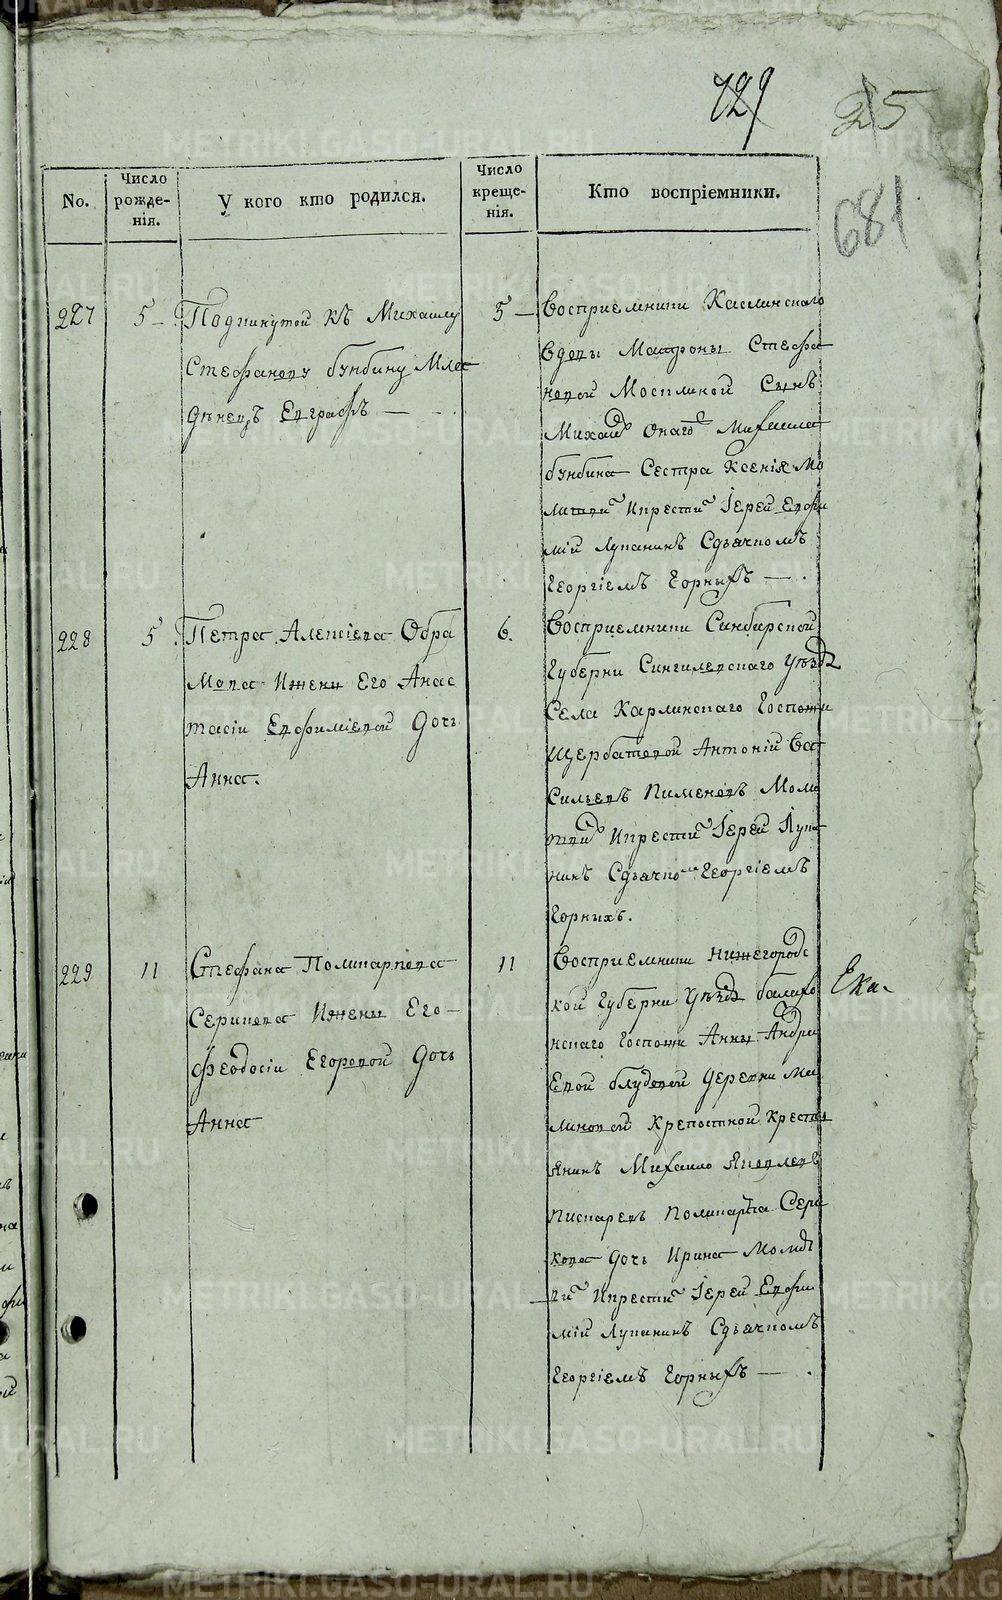 729
25
681
No.
Число рожденія.
У кого кто родился.
Число крещенія.
Кто воспріемники.
227
5
Подкинутой къ Михаилу
Стефанову бунбину Мла
денецъ Евграфъ
5
Восприемники Каслинскаго
вдовы Матроны Стефа
новой Мосплиной Сынъ
Михаил онаго Михаила
бунбина Сестра Ксенія Мо
литвил и крестил Іерей Евфи
мій Лупанинъ Сдьячкомъ
Георгіемъ Горныхъ
228
5
Петра Алексіева Обра
мова Ижены Его Анас
тасіи Евфиміевой Дочь
Анна.
6.
Восприемники Синбирской
Губерни Сингилевскаго Уезда
Села Карлинскаго Госпожи
Щербатовой Антоній Ва
сильевъ Пименовъ Моли
твил Икрестил Іерей Лупа
нинъ Сдьячком Георгіемъ
Горныхъ.
229
11
Стефана Поликарпова
Серикова Ижены Его
Феодосіи Егоровой Дочь
Анна
11
Восприемники Нижегородс
кой Губерни Уезда балахо
нскаго Госпожи Анны Андре
евой блудовой Деревни Ма
линовой Крепостной Кресть
янинъ Михаило Яковлевъ
Писаревъ Поликарпа Сери
кова Дочь Ирина Молит
вил Икрестил Іерей Евфи
мій Лупанинъ Сдьячкомъ
Георгіемъ Горныхъ
Ека.
METRIKI.GASO-URAL.RU